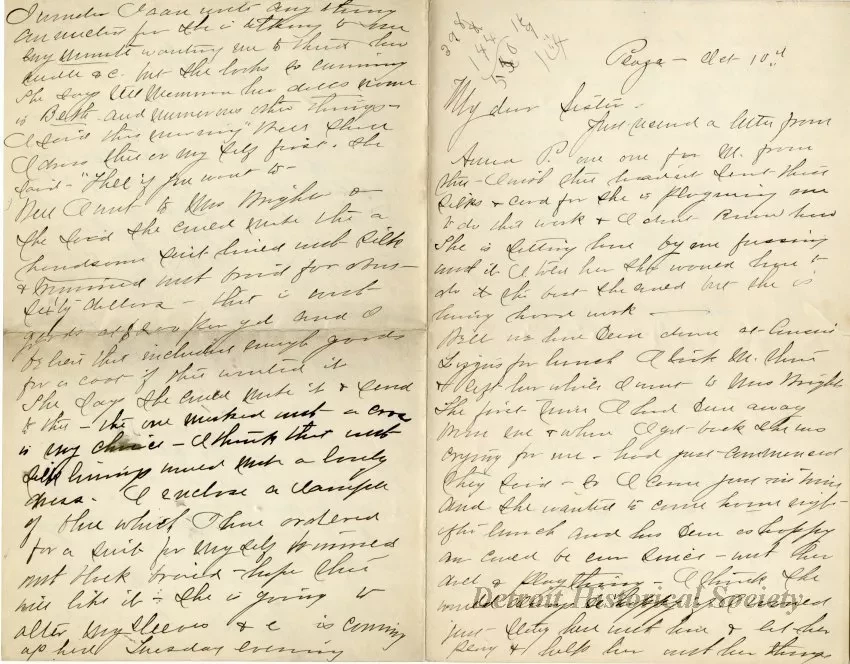 398
144
530
1 1/2 9
1 1/4
Oct 10th
My dear Sister.
Just received a letter from
Anna P. one one for M. from
silks & card for she is
to do that work & I don't know how
She is sitting here by me fussing
with it I told her she would have to
do it the best she could but she is
having hard work
Well we have been down at
for lunch I took M. there
& left her while I went to Mrs Wright
The first time I had been away
from her & when I got back she was
crying for me - had just commenced
they said - so I came just in time
and she wanted to come home right
after lunch and has been as happy
as could be ever since - with her
doll & play things - I think she
just here with her & let her
& with her things
I wonder I can write any thing
connected for she is talking to me
every minute wanting me to thread her
needle &c. but she looks so cunning
She says tell Mamma her dolls name
is and numerous other things -
I said this morning "Well shall
I dress this or my self first. She
said - "Thee if you want to -
Well I went to Mrs Wright &
she said she could make the a
handsome suit lined with silk
& trimmed with braid for about
sixty dollars - that is with
goods at 2.00 per yd and I
that includes enough goods
for a coat if thee wanted it
She says she could make it & send
to thee - the one marked with a cross
is my choice - I think that with
silk linings would make a lovely
dress. I enclose a sample
of blue which I have ordered
for a suit for my self trimmed
with black braid - hope thee
will like it - she is going to
alter my sleeves & c is coming
up here Tuesday evening
Detroit Historical Society